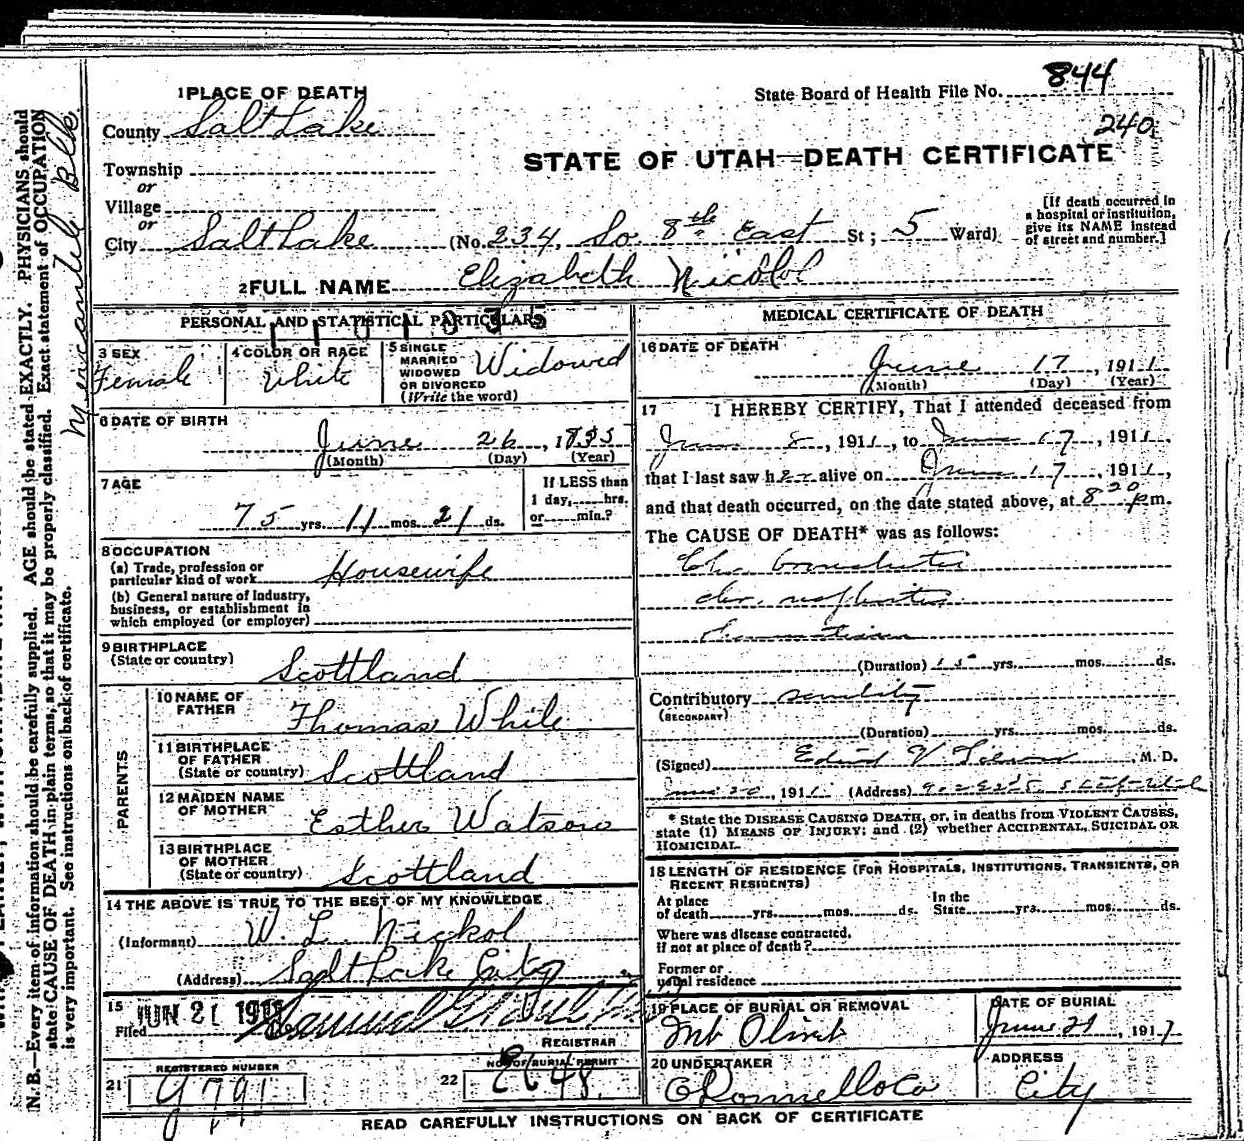 844
240
1 PLACE OF DEATH
State Board of Health File No.
County Salt Lake
STATE OF UTAH—DEATH CERTIFICATE
Township
or
Village
or
City Salt Lake (No. 234, So. 8th East St; 5 Ward)
[If death occurred in a hospital or institution, give its NAME instead of street and number.]
2 FULL NAME Elizabeth Nicolol
PERSONAL AND STATISTICAL PARTICULARS
3 SEX
Female
4 COLOR OR RACE
White
5 SINGLE
MARRIED
WIDOWED
OR DIVORCED
(Write the word)
Widowed
6 DATE OF BIRTH
June 26, 1835
(Month) (Day) (Year)
7 AGE
75 yrs. 11 mos. 21 ds.
If LESS than
1 day, hrs.
or min.?
8 OCCUPATION
(a) Trade, profession or
particular kind of work Housewife
(b) General nature of Industry,
business, or establishment in
which employed (or employer)
9 BIRTHPLACE
(State or country) Scottland
PARENTS
10 NAME OF
FATHER Thomas White
11 BIRTHPLACE
OF FATHER
(State or country) Scottland
12 MAIDEN NAME
OF MOTHER Esther Watson
13 BIRTHPLACE
OF MOTHER
(State or country) Scottland
14 THE ABOVE IS TRUE TO THE BEST OF MY KNOWLEDGE
(Informant) W. L. Nickol
(Address) Salt Lake City
15
Filed JUN 21 191
REGISTRAR
REGISTERED NUMBER
21 9791
NO. OF BURIAL PERMIT
22 E 48
MEDICAL CERTIFICATE OF DEATH
16 DATE OF DEATH
June 17, 1911
(Month) (Day) (Year)
17 I HEREBY CERTIFY, That I attended deceased from
June 8, 1911, to June 17, 1911,
that I last saw her alive on June 17, 1911,
and that death occurred, on the date stated above, at 8 20 p m.
The CAUSE OF DEATH* was as follows:
Chr. bronchitis
chr. nephritis
rheumatism
(Duration) 15 yrs. mos. ds.
Contributory senility
(SECONDARY)
(Duration) yrs. mos. ds.
(Signed) M. D.
June 20, 1911 (Address)
* State the DISEASE CAUSING DEATH, or, in deaths from VIOLENT CAUSES,
state (1) MEANS OF INJURY; and (2) whether ACCIDENTAL, SUICIDAL OR
HOMICIDAL.
18 LENGTH OF RESIDENCE (FOR HOSPITALS, INSTITUTIONS, TRANSIENTS, OR
RECENT RESIDENTS)
At place
of death yrs. mos. ds. In the State yrs. mos. ds.
Where was disease contracted,
if not at place of death?
Former or
usual residence
19 PLACE OF BURIAL OR REMOVAL
Mt Olivet
DATE OF BURIAL
June 21, 191
20 UNDERTAKER
O'Donnell & Co
ADDRESS
City
READ CAREFULLY INSTRUCTIONS ON BACK OF CERTIFICATE
N. B.—Every item of information should be carefully supplied. AGE should be stated EXACTLY. PHYSICIANS should
state CAUSE OF DEATH in plain terms, so that it may be properly classified. Exact statement of OCCUPATION
is very important. See instructions on back of certificate.